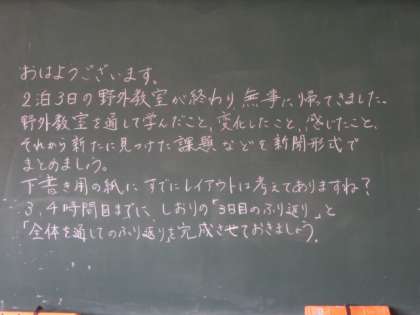 おはようございます。
2泊3日の野外教室が終わり、無事に、帰ってきました。
野外教室を通して学んだこと、変化したこと、感じたこと、
それから新たに見つけた課題などを新聞形式で
まとめましょう。
下書き用の紙に、すでにレイアウトは考えてありますね?
3,4時間目までに、しおりの「3日目のふり返り」と
「全体を通してのふり返り」を完成させておきましょう。